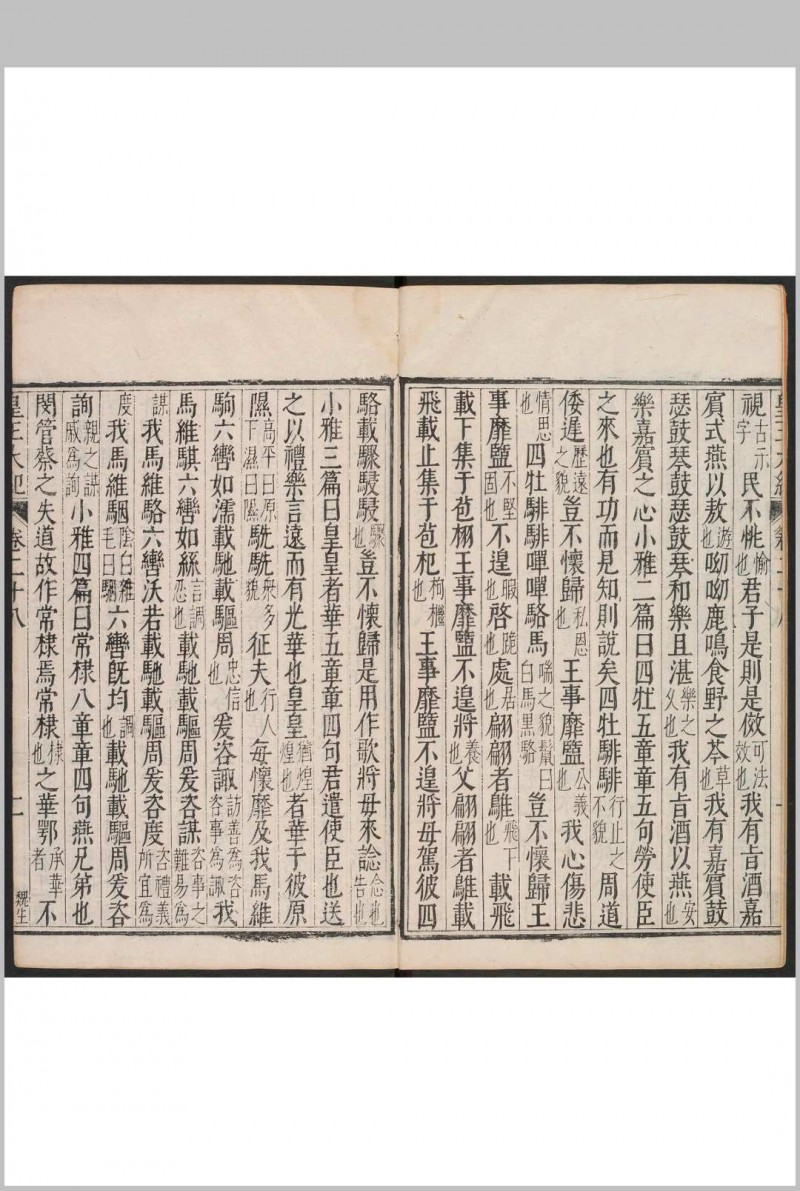 視古示字民不恌愉也君子是則是傚可法效也我有旨酒嘉
賓式燕以敖遊也呦呦鹿鳴食野之芩草也我有嘉賓鼓
瑟鼓琴鼓瑟鼓琴和樂且湛樂之久也我有旨酒以燕安也
樂嘉賓之心小雅二篇曰四牡五章章五句勞使臣
之來也有功而見知則說矣四牡騑騑行止之不貌周道
倭遲歷遠之貌豈不懷歸私恩也王事靡盬公義也我心傷悲
情思也四牡騑騑嘽嘽駱馬喘之貌鬣曰白馬黑駱豈不懷歸王
事靡盬不堅固也不遑暇也啓跪也處居也翩翩者鵻飛下也載飛
載下集于苞栩王事靡盬不遑將養也父翩翩者鵻載
飛載止集于苞杞枸檵也王事靡盬不遑將母駕彼四
駱載驟駸駸驟也豈不懷歸是用作歌將母來諗念也告也
小雅三篇曰皇皇者華五章章四句君遣使臣也送
之以禮樂言遠而有光華也皇皇猶煌煌也者華于彼原
隰高平曰原下濕曰隰駪駪衆多貌征夫行人也每懷靡及我馬維
駒六轡如濡載馳載驅周忠信也爰咨諏訪善為咨咨事為諏我
馬維騏六轡如絲言調忍也載馳載驅周爰咨謀咨事之難易為
謀我馬維駱六轡沃若載馳載驅周爰咨度咨禮義所宜為
度我馬維駰陰白雜毛曰駰六轡既均調也載馳載驅周爰咨
詢親之謀戚為詢小雅四篇曰常棣八章章四句燕兄弟也
閔管蔡之失道故作常棣焉常棣棣也之華鄂承華者不
皇王大紀 卷二十八 二 魏生